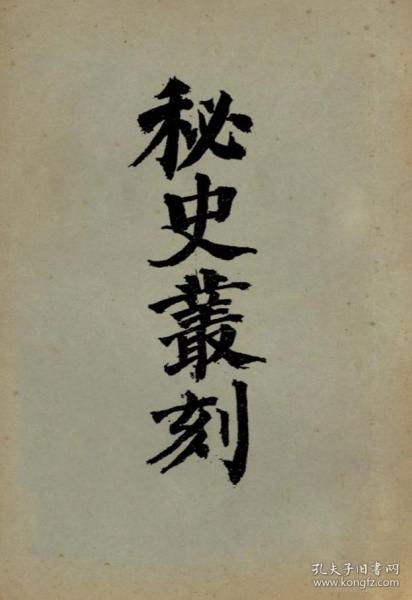 秘史叢刻
孔夫子旧書网
www.kongfz.com